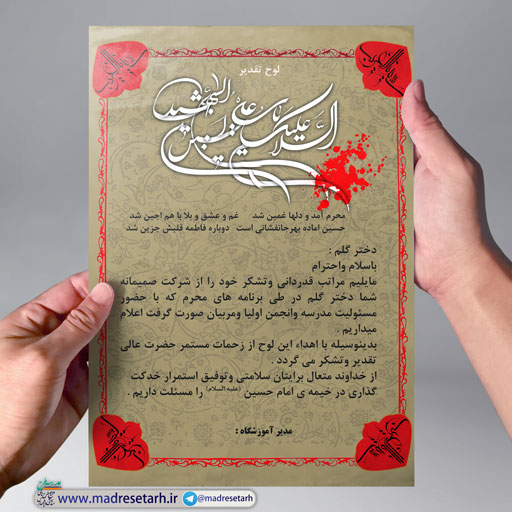 لوح تقدیر
السلام علیک یا علی بن الحسین الشهید
محرم آمد و دلها غمین شد    غم و عشق و بلا با هم اجین شد
حسین اماده بهرجانفشانی است    دوباره فاطمه قلبش حزین شد
دختر گلم :
باسلام واحترام
مایلیم مراتب قدردانی وتشکر خود را از شرکت صمیمانه
شما دختر گلم در طی برنامه های محرم که با حضور
مسئولیت مدرسه وانجمن اولیا ومربیان صورت گرفت اعلام
میداریم .
بدینوسیله با اهداء این لوح از زحمات مستمر حضرت عالی
تقدیر وتشکر می گردد .
از خداوند متعال برایتان سلامتی وتوفیق استمرار خدکت
گذاری در خیمه ی امام حسین (علیه السلام) را مسئلت داریم .
مدیر آموزشگاه :
www.madresetarh.ir
@madresetarh